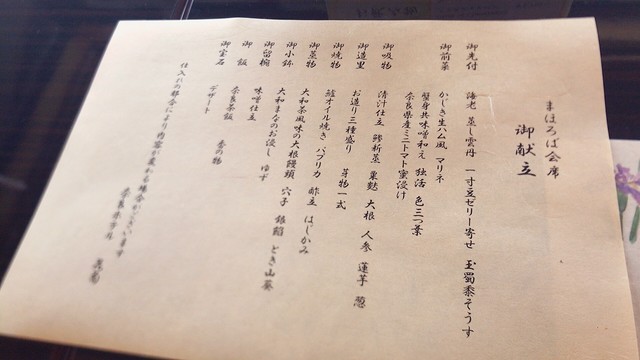 まほろば会席
御献立
御先付 海老 蒸し雲丹 一寸豆ゼリー寄せ 玉蜀黍そうす
御前菜 かじき生ハム風 マリネ
蟹身共味噌和え 独活 色三つ葉
奈良県産ミニトマト蜜浸け
御吸物 清汁仕立 鱧新蒸 東麩 大根 人参 蓮芋
御造里 お造り三種盛り 芽物一式
御焼物 オイル焼き パプリカ 酢立 はじかみ
御蒸物 大和茶風味の大根饅頭 穴子 銀餡 とき山葵
御小鉢 大和まなのお浸し ゆず
御留椀 味噌仕立
御飯 奈良茶飯 香の物
御宝石 デザート
仕入れの都合により内容が変わる場合がございます
奈良ホテル 花菊